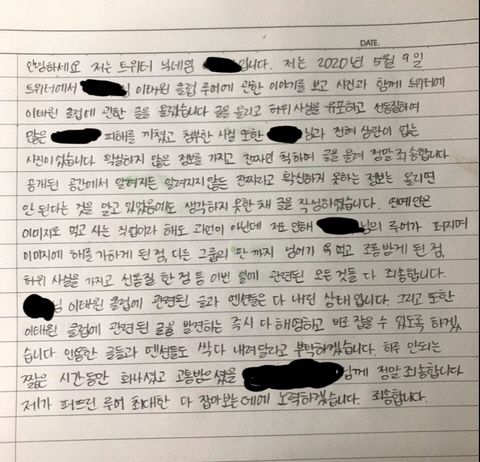 DATE.
안녕하세요 저는 트위터 닉네임 입니다. 저는 2020년 5월 9일
트위터에서 이태원 클럽 루머에 관한 이야기를 보고 사진과 함께 트위터에
이태원 클럽에 관한 글을 올렸습니다 글을 올리고 허위 사실을 유포하고 선동질하여
많은 피해를 끼쳤고 첨부한 사실 또한 님과 전혀 상관이 없는
사진이었습니다. 확실하지 않은 정보를 가지고 진짜인 척하여 글을 올려 정말 죄송합니다
공개된 공간에서 알려지든 알려지지 않든 진짜라고 확신하지 못하는 정보는 올리면
안 된다는 것을 알고 있었음에도 생각하지 못한 채 글을 작성하였습니다. 연예인은
이미지로 먹고 사는 직업이라 해도 과언이 아닌데 저로 인해 님의 루머가 퍼지며
이미지에 해를 가하게 된 점, 다른 그룹의 판까지 넘어가 욕 먹고 조롱받게 된 점,
허위 사실을 가지고 선동질 한 점 등 이번 일에 관련된 모든 것들 다 죄송합니다.
님 이태원 클럽에 관련된 글과 멘션들은 다 내린 상태입니다. 그리고 또한
이태원 클럽에 관련된 글을 발견하는 즉시 다 해명하고 바로 잡을 수 있도록 하겠
습니다. 인용한 글들과 멘션들도 싹 다 내려달라고 부탁하겠습니다. 하루 안되는
짧은 시간동안 화나셨고 고통받으셨을 님께 정말 죄송합니다
제가 퍼뜨린 루머 최대한 다 잡아보는 데에 노력하겠습니다. 죄송합니다.